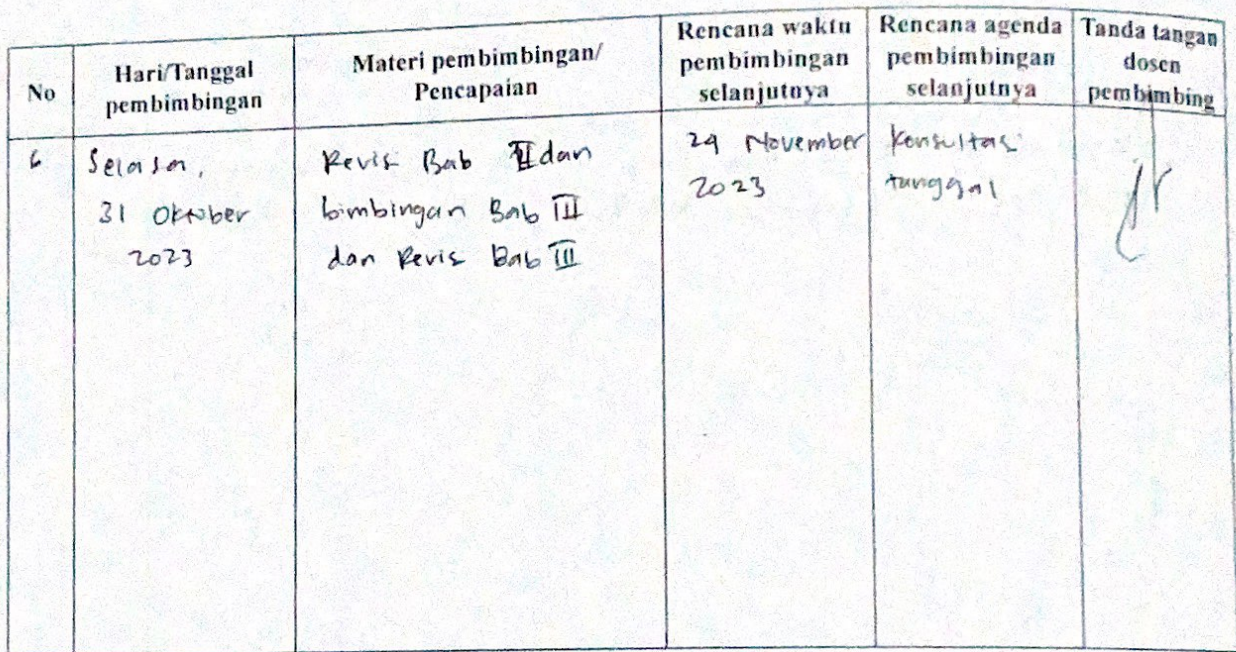 No
Hari/Tanggal
pembimbingan
Materi pembimbingan/
Pencapaian
Rencana waktu
pembimbingan
selanjutnya
Rencana agenda
pembimbingan
selanjutnya
Tanda tangan
dosen
pembimbing
6
Selasa,
31 Oktober
2023
Revisi Bab II dan
bimbingan Bab III
dan Revisi Bab III
24 November
2023
Konsultasi
tanggal